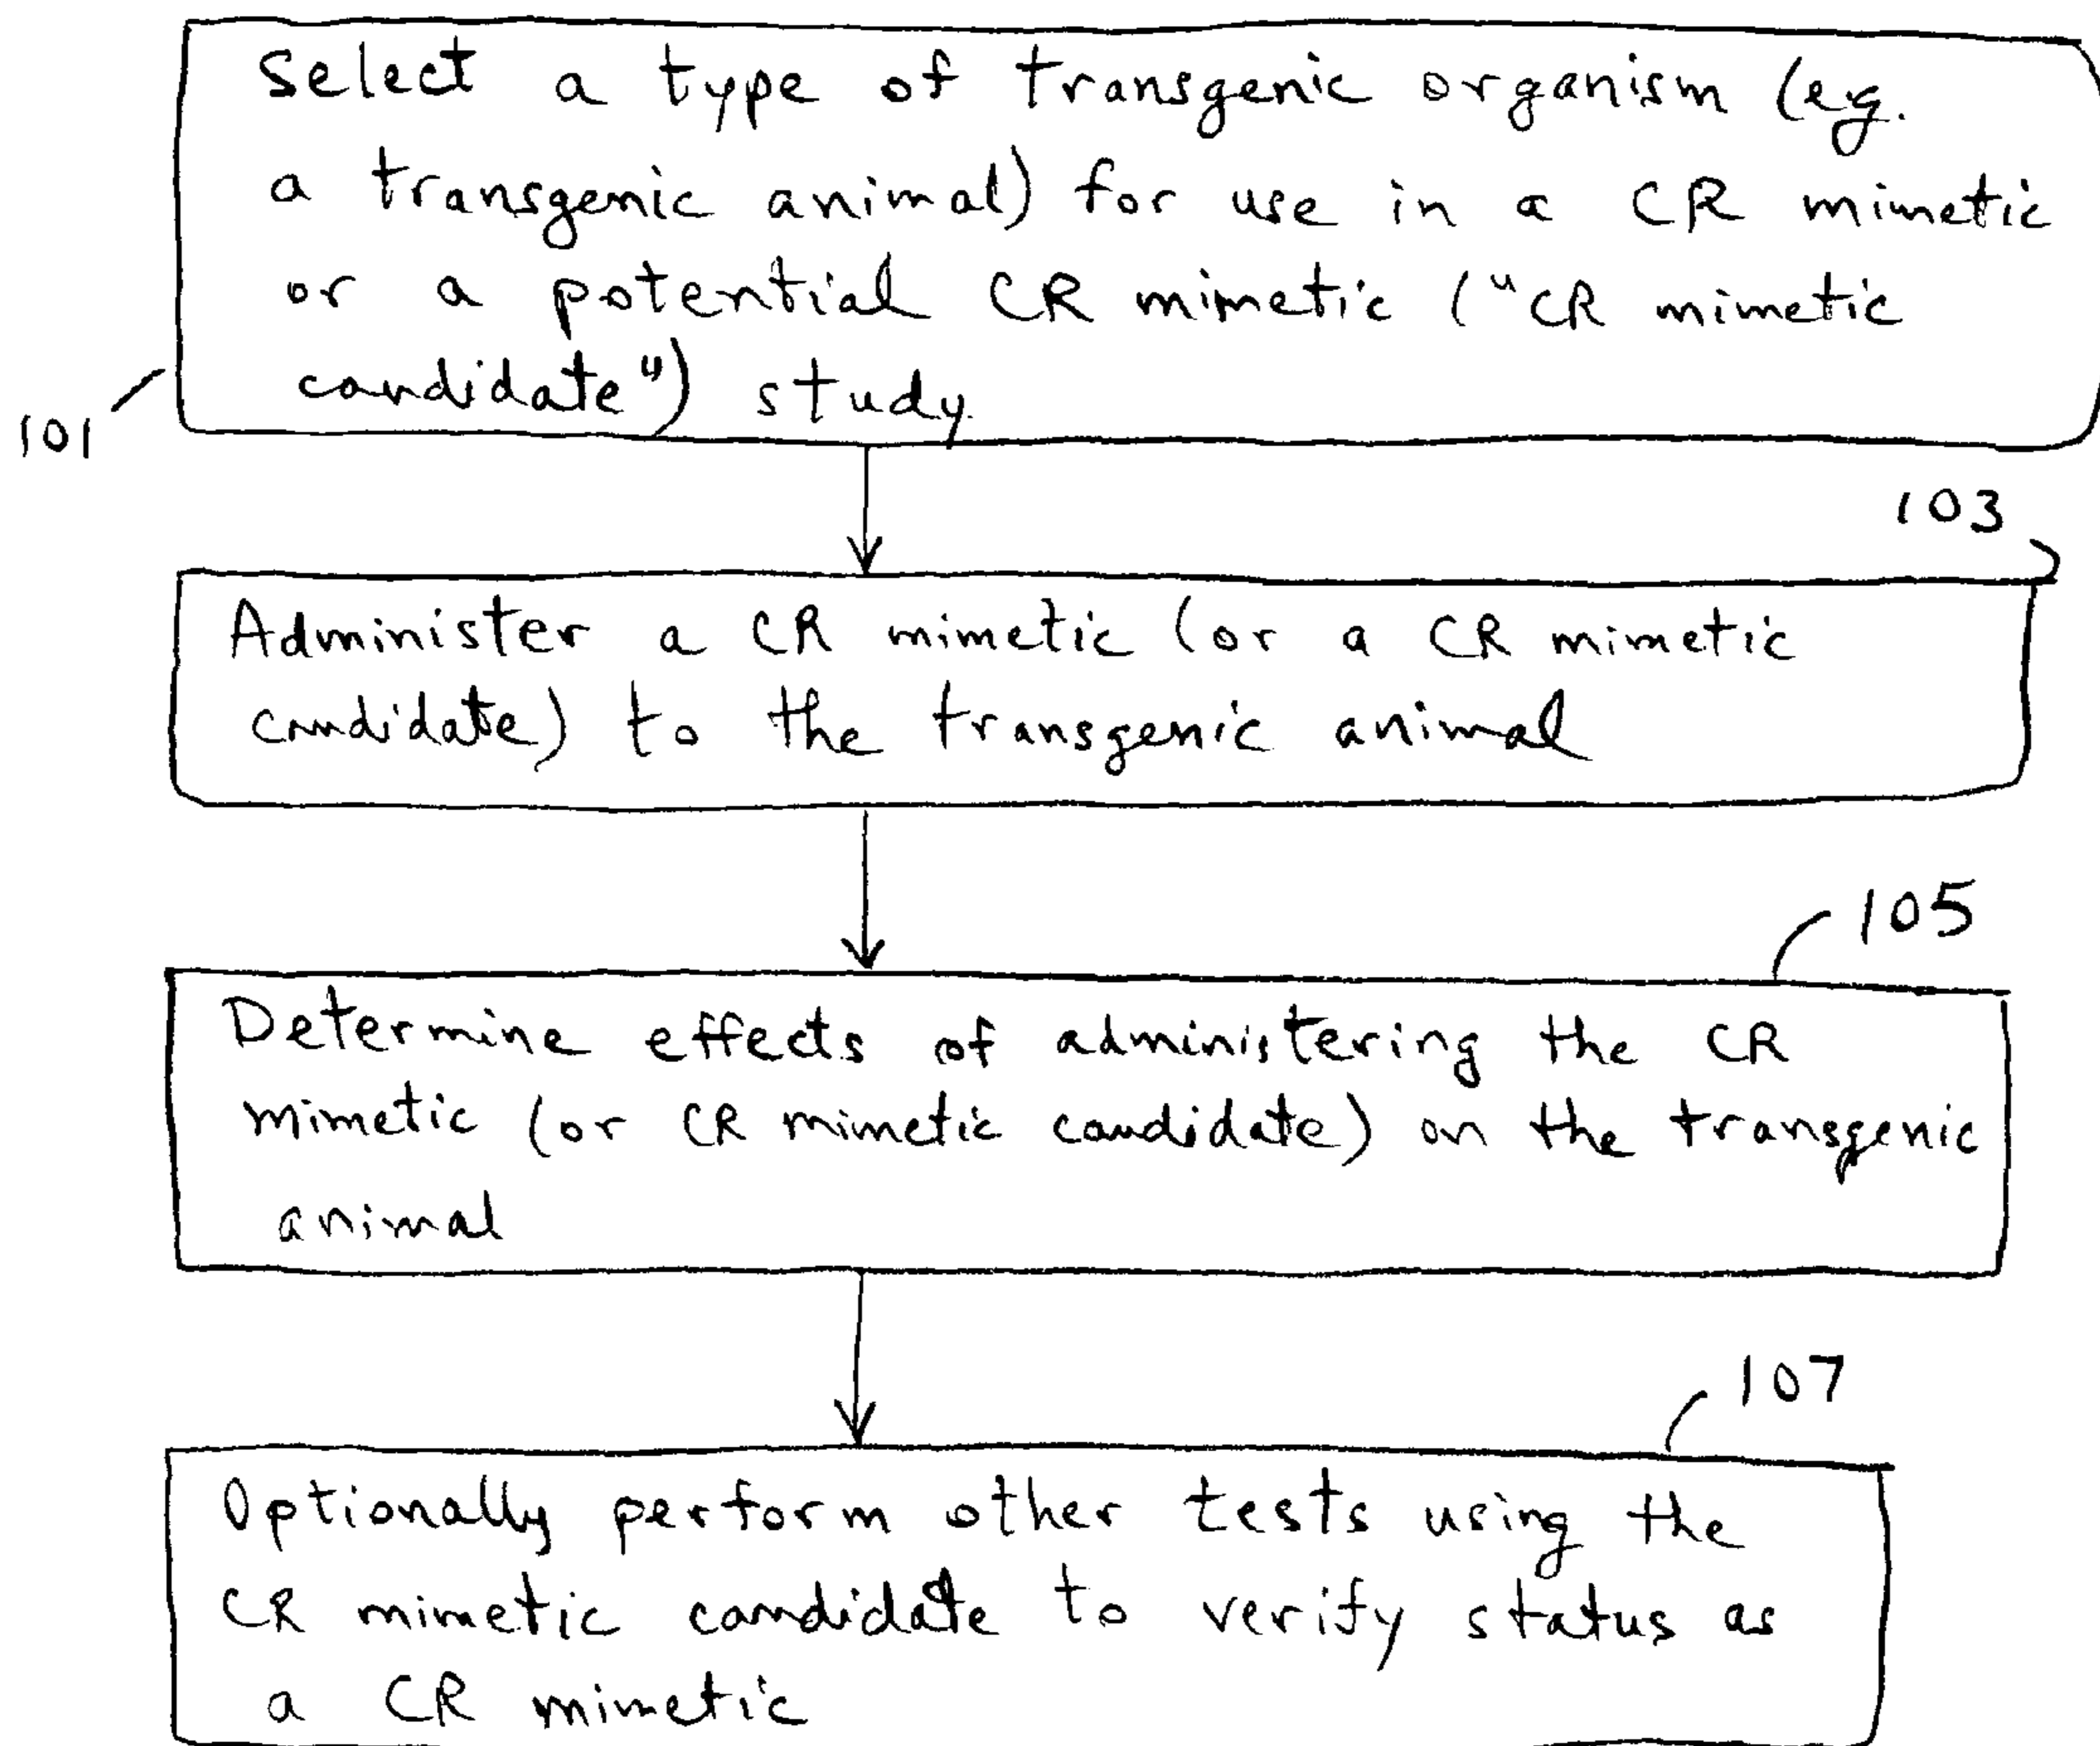 Select a type of transgenic organism (eg.
a transgenic animal) for use in a CR mimetic
or a potential CR mimetic ("CR mimetic
candidate") study
101
103
Administer a CR mimetic (or a CR mimetic
candidate) to the transgenic animal
105
Determine effects of administering the CR
mimetic (or CR mimetic candidate) on the transgenic
animal
107
Optionally perform other tests using the
CR mimetic candidate to verify status as
a CR mimetic